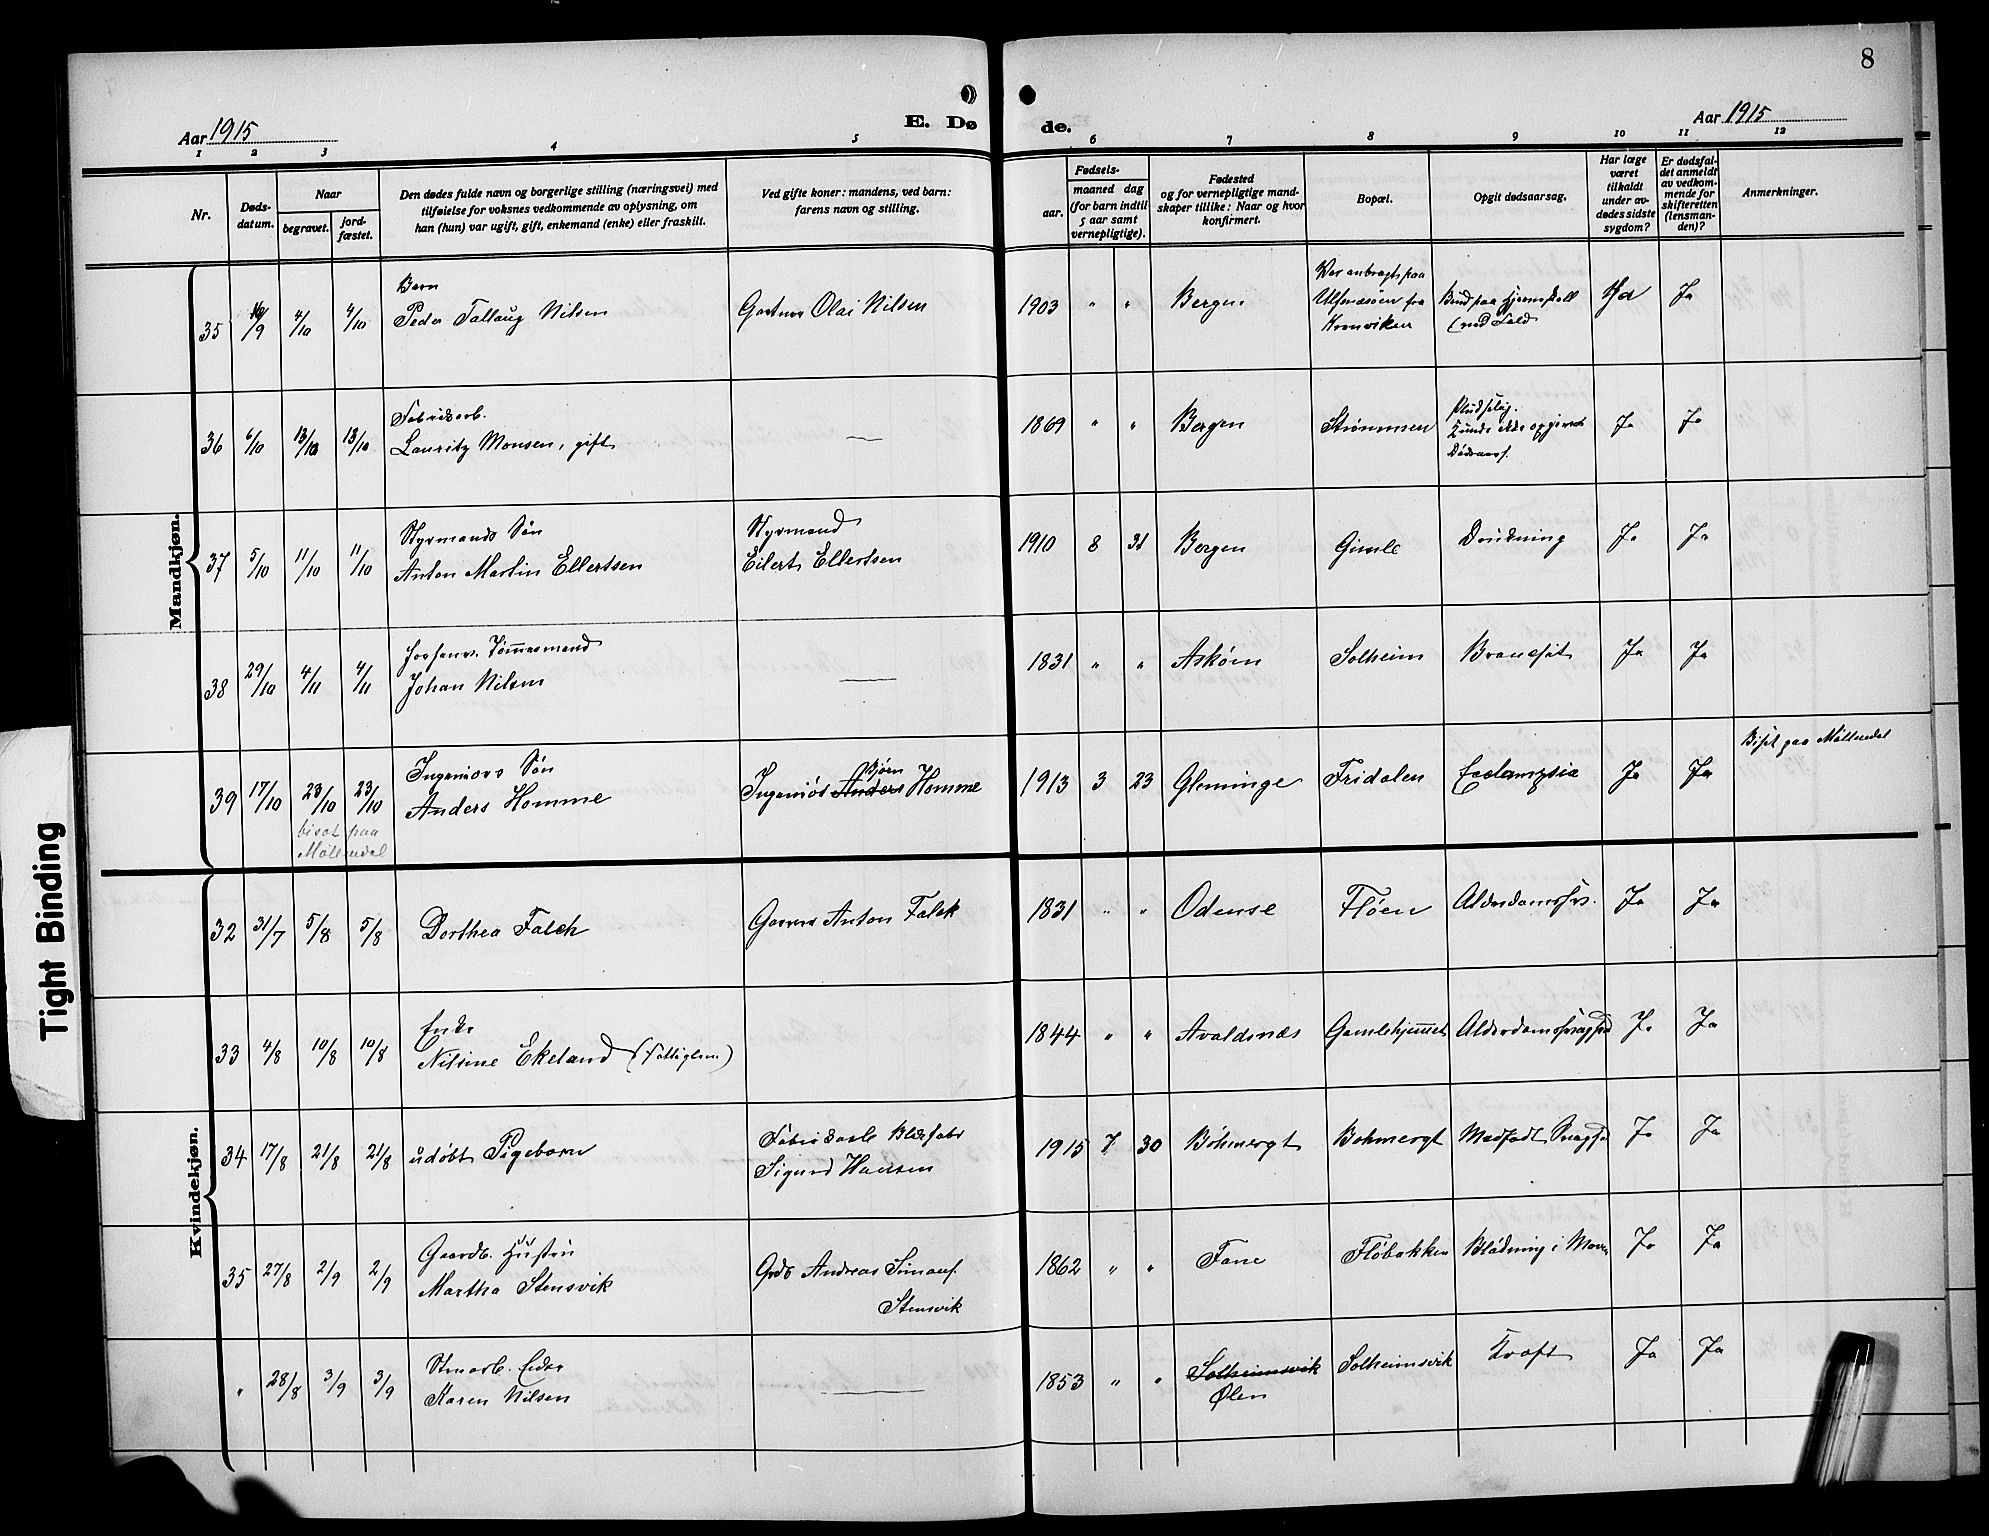 8
Aar 1915
E. Dø de.
Aar 1915
1 2 3 4 5 6 7 8 9 10 11 12
Nr.
Døds-
datum.
Naar
begravet.
jord-
fæstet.
Den dødes fulde navn og borgerlige stilling (næringsvei) med
tilføielse for voksnes vedkommende av oplysning, om
han (hun) var ugift, gift, enkemand (enke) eller fraskilt.
Ved gifte koner: mandens, ved barn:
farens navn og stilling.
Fødsels-
aar.
maaned dag
(for barn indtil
5 aar samt
vernepligtige).
Fødested
og for vernepligtige mand-
skaper tillike: Naar og hvor
konfirmert.
Bopæl.
Opgit dødsaarsag.
Har læge
været
tilkaldt
under av-
dødes sidste
sygdom?
Er dødsfal-
det anmeldt
av vedkom-
mende for
skifteretten
(lensman-
den)?
Anmerkninger.
Mandkjøn.
35 16/9 4/10 4/10
Barn
Peder Tallaug Nilsen
Gartner Olai Nilsen
1903 " " Bergen
Var anbragt paa
Ulfenæsøen fra
Kronviken
Brud paa Hjerneskall
(ved Fald
Ja
36 6/10 13/10 13/10
Fabriksarb.
Lauritz Monsen, gift
—
1869 " " Bergen Strømmen
Pludselig.
Kunde ikke opgives
Dødsaars.
Ja Ja
37 5/10 11/10 11/10
Styrmands Søn
Anton Martin Ellertsen
Styrmand
Eilert Ellertsen
1910 8 31 Bergen Gimle Drukning Ja Ja
38 29/10 4/11 4/11
Tømmermand
Johan Nilsen
—
1831 " " Askøen Solheim Ja Ja
39 17/10 23/10 23/10
Ingeniørs Søn
Anders Homme
bisat paa
Møllendal
Bjørn
Ingeniør Anders Homme
1913 3 23 Glemminge Fridalen Eclampsia Ja Ja
Bisat paa Møllendal
Kvindekjøn.
32 31/7 5/8 5/8 Dorthea Falch
Garver Anton Falck
1831 " " Odense Fløen Alderdomssvs. Ja Ja
33 4/8 10/8 10/8
Enke
Nilsine Ekeland (Fattiglem)
1844 " " Avaldsnæs Gamlehjemmet Alderdomssvaghed Ja Ja
34 17/8 21/8 21/8 udøbt Pigebarn
Fabriksarb.
Sigurd Hansen
1915 7 30 Böhmergt Bohmergt Medfødt Svaghed Ja Ja
35 27/8 2/9 2/9
Gaardb. Hustru
Martha Stensvik
Grdb Andreas Simons.
Stensvik
1862 " " Fane Fløbakken Blødning i Maven Ja Ja
" 28/8 3/9 3/9
Enke
Karen Nilsen
—
1853 " " Solheimsvik
Ølen
Solheimsvik Kræft Ja Ja
Tight Binding